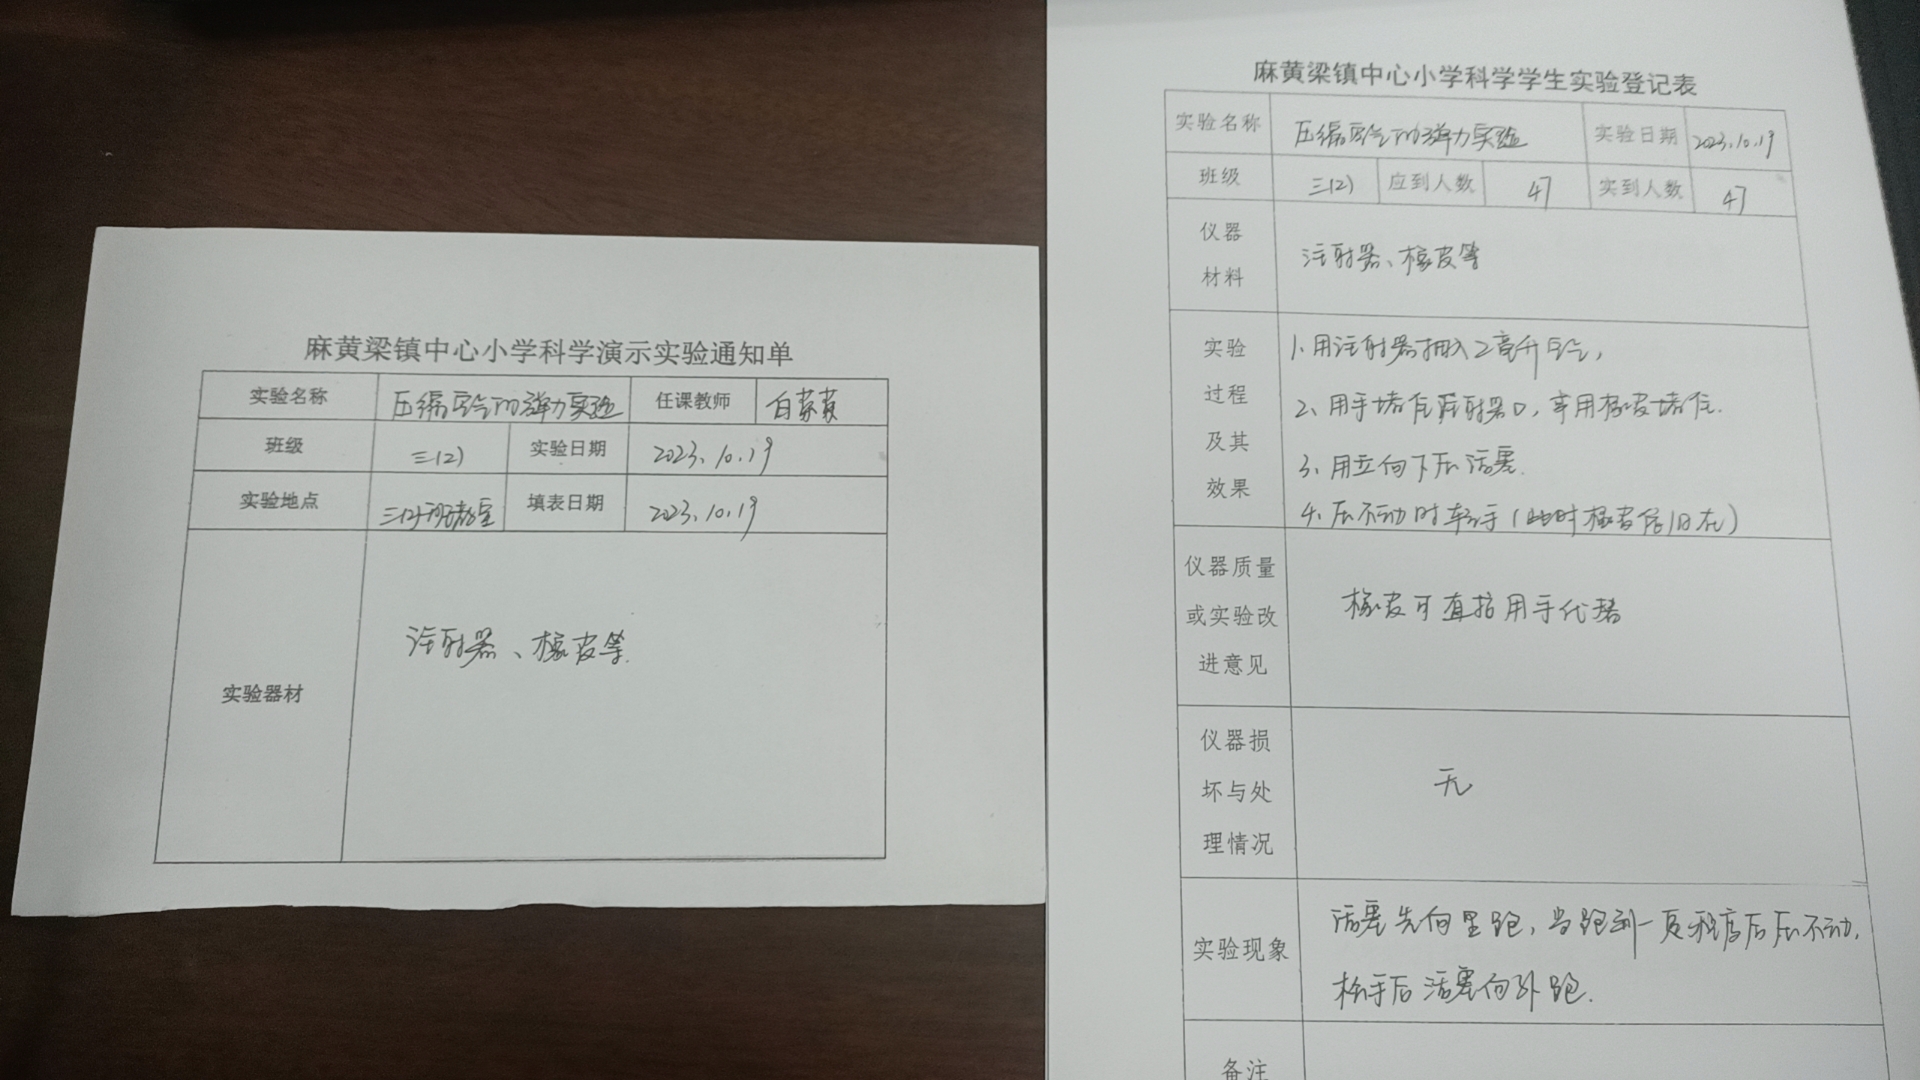 麻黄梁镇中心小学科学演示实验通知单
实验名称 压缩空气的弹力实验 任课教师
班级 三(2) 实验日期 2023.10.19
实验地点 三(2)班教室 填表日期 2023.10.19
实验器材 注射器、橡皮等
麻黄梁镇中心小学科学学生实验登记表
实验名称 压缩空气的弹力实验 实验日期 2023.10.19
班级 三(2) 应到人数 47 实到人数 47
仪器
材料
注射器、橡皮等
实验
过程
及其
效果
1、用注射器抽入2毫升空气,
2、用手堵住注射器口,再用橡皮堵住.
3、用力向下压活塞.
4、压不动时松手(此时橡皮依旧在)
仪器质量
或实验改
进意见
橡皮可直接用手代替
仪器损
坏与处
理情况
无
实验现象
活塞先向里跑,当跑到一定程度后压不动.
松手后活塞向外跑.
备注